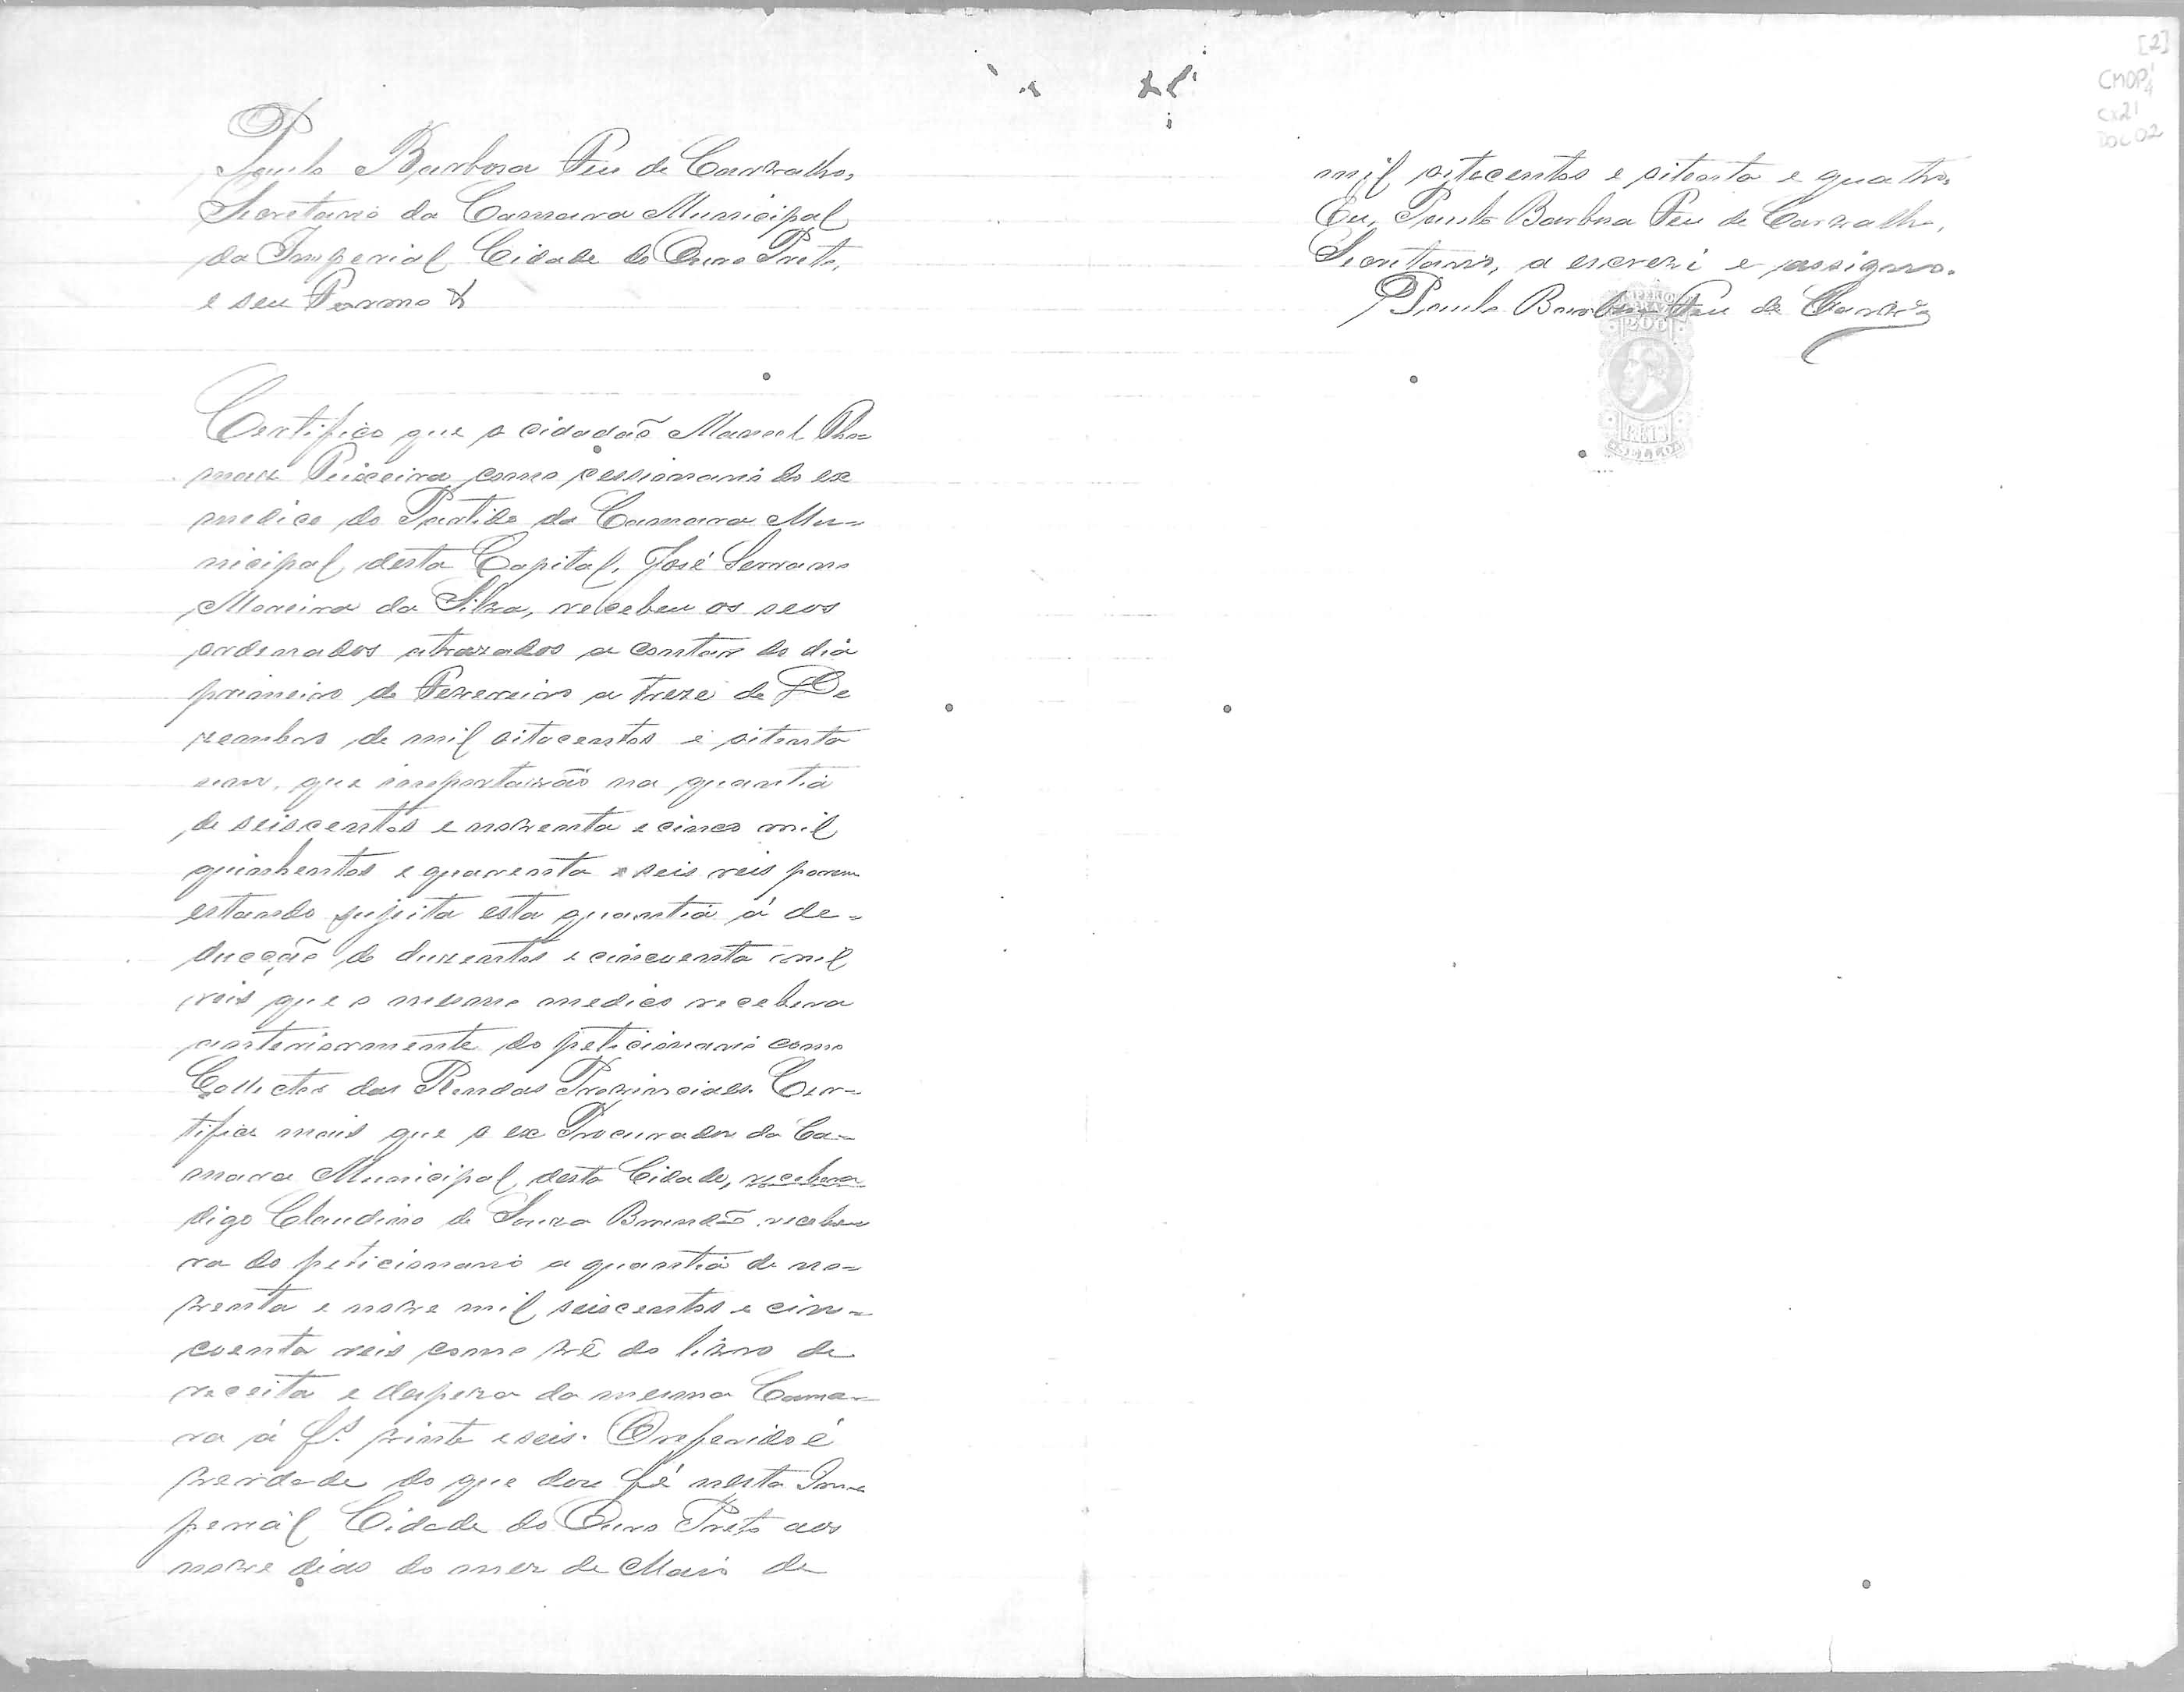 Paulo Barbosa Feu de Carvalho,
Secretario da Camara Municipal
da Imperial Cidade do Ouro Preto,
e seu Termo &
Certifico que o cidadão Manoel Tho-
maz Teixeira como cessionario do ex
medico do Partido da Camara Mu-
nicipal desta Capital, José Serrano
Moreira da Silva, recebeu os seos
ordenados atrazados a contar do dia
primeiro de Fevereiro a treze de De
zembro de mil oitocentos e oitenta
um, que importarão na quantia
de seiscentos e noventa e cinco mil
quinhentos e quarenta e seis reis porem
estando sujeita esta quantia á de-
ducção de duzentos e cincoenta mil
reis que o mesmo medico recebera
anteriormente do peticionario como
Collector das Rendas Provinciaes. Cer-
tifico mais que o ex Procurador da Ca-
mara Municipal desta Cidade, recebera
digo Claudino de Souza Brandão recebe
ra do peticionario a quantia de no-
venta e nove mil seiscentos e cin-
coenta reis como vê do livro de
receita e despeza da mesma Cama-
ra á fs. vinte e seis. O referido é
verdade do que dou fé nesta Im-
perial Cidade do Ouro Preto aos
nove dias do mez de Maio de
[2]
CMOP
cx21
DOC 02
mil oitocentos e oitenta e quatro.
Eu, Paulo Barbosa Feu de Carvalho,
Secretario, a escrevi e assigno.
Paulo Barbosa Feu de Carvº
IMPERIO
200
REIS
SELLO